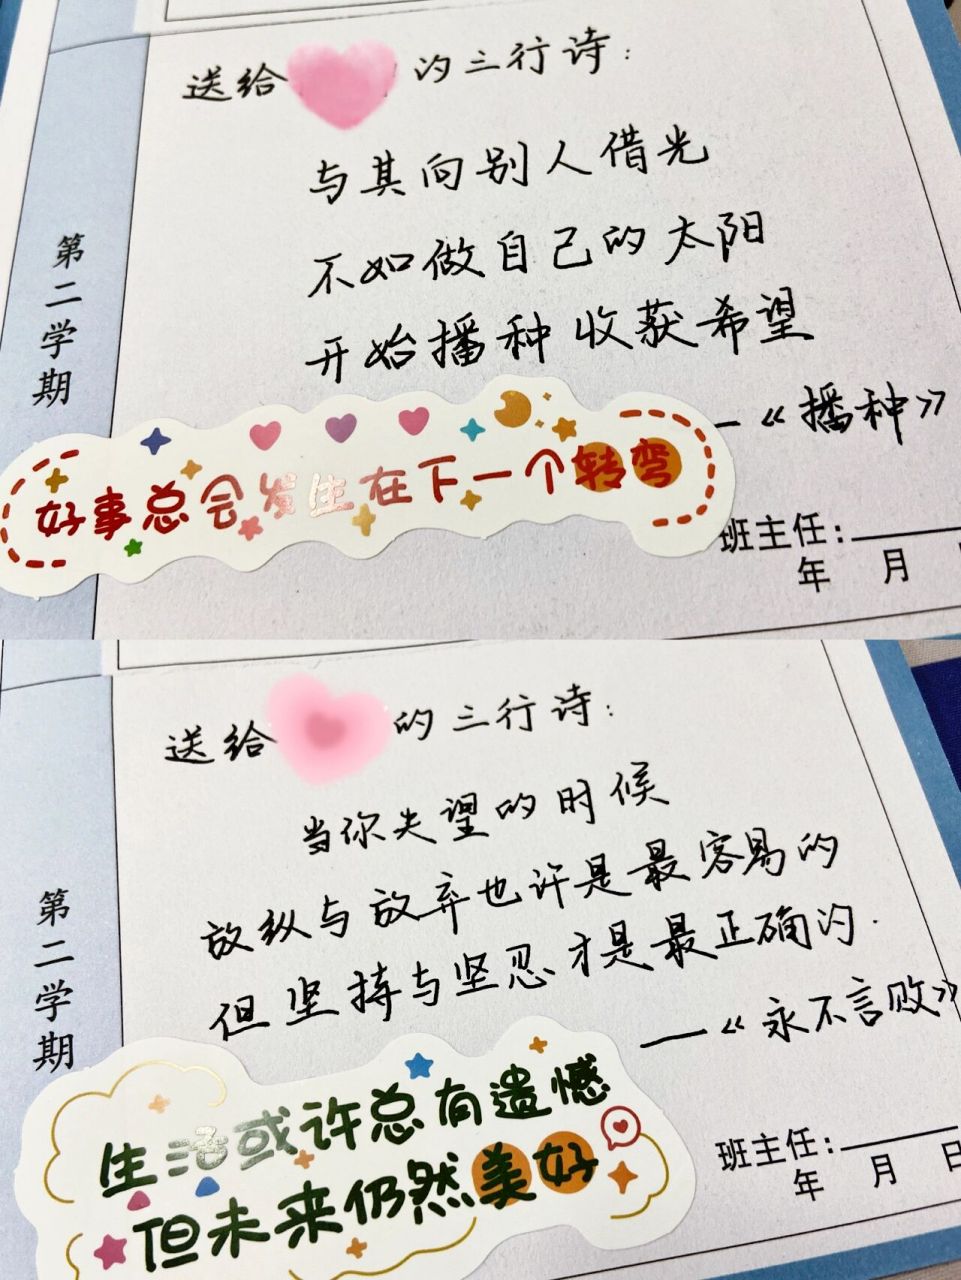 送给
的三行诗:
与其向别人借光
不如做自己的太阳
开始播种 收获希望
—《播种》
第二学期
好事总会发生在下一个转弯
班主任:
年 月
送给
的三行诗:
当你失望的时候
放纵与放弃也许是最容易的
但坚持与坚忍才是最正确的.
—《永不言败》
第二学期
生活或许总有遗憾
但未来仍然美好
班主任:
年 月 日